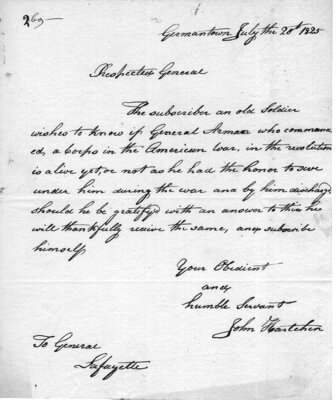 269-
Germantown July the 20th 1825
Respected General
The subscriber an old Soldier
wishes to know if General Armaa who command
ed, a Corps in the American war, in the revolution
is a live yet, or not as he had the honor to serve
under him during the war and by him discharge
should he be gratifyd with an answer to this he
will thankfully recive the same, and subscribe
himself,
Your Obedient
and
humble Servant
John
To General
Lafayette